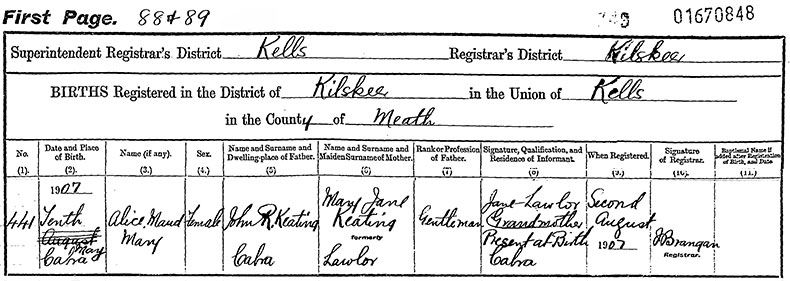 First Page. 88 & 89
01670848
Superintendent Registrar's District Kells Registrar's District Kilskeer
BIRTHS Registered in the District of Kilskeer in the Union of Kells
in the County of Meath
No. Date and Place of Birth. Name (if any). Sex. Name and Surname and Dwelling-place of Father. Name and Surname and Maiden Surname of Mother. Rank or Profession of Father. Signature, Qualification, and Residence of Informant. When Registered. Signature of Registrar. Baptismal Name if added after Registration of Birth, and Date
(1). (2). (3.) (4.) (5) (6) (7) (8) (9.) (10.) (11.)
1907
441 Tenth August May Cabra
Alice Maud Mary
Female
John R. Keating Cabra
Mary Jane Keating formerly Lawlor
Gentleman
Jane Lawlor Grandmother Present at Birth Cabra
Second August 1907
J Brangan Registrar.